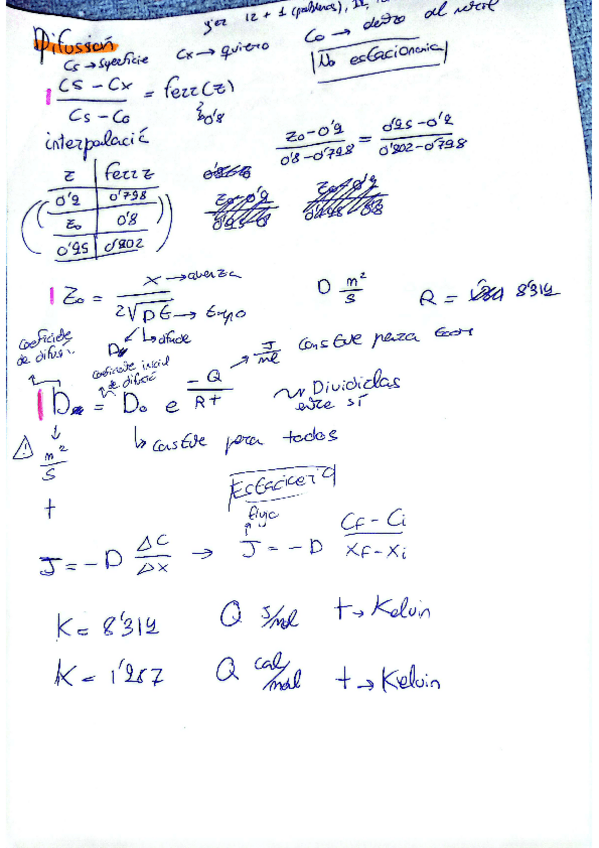 12 + 1 (problemas), 11,
Difussión
Cs → superficie Cx → quiero Co → dentro del metal
No estacionaria
Cs - Cx / Cs - Co = ferr(z)
0'8
interpolació
z | ferr z
0'9 | 0'798
zo | 0'8
0'95 | 0'802
zo - 0'9 / 0'8 - 0'798 = 0'95 - 0'9 / 0'802 - 0'798
Zo = x / 2√Dt
x → avanza
t → tiempo
D m²/s R = 8'314
coeficiente de difusi.
coeficiente inicial de difusió
J/mol
D = Do e -Q / Rt
Dividirlas entre sí
m²/s
↳ constante para todos
t
Estacionaria
flujo
J = -D ΔC / Δx → J = -D Cf - Ci / xf - xi
K = 8'314 Q J/mol t → Kelvin
K = 1'987 Q cal/mol t → Kelvin